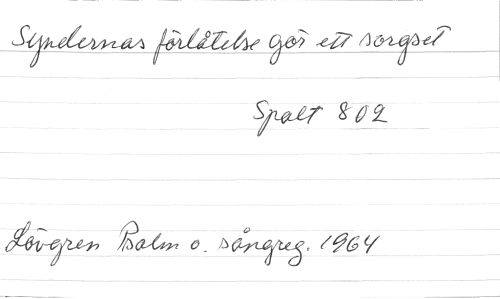 Syndernas förlåtelse gör ett sorgset
Spalt 802
Lövgren Psalm o. sångreg. 1964